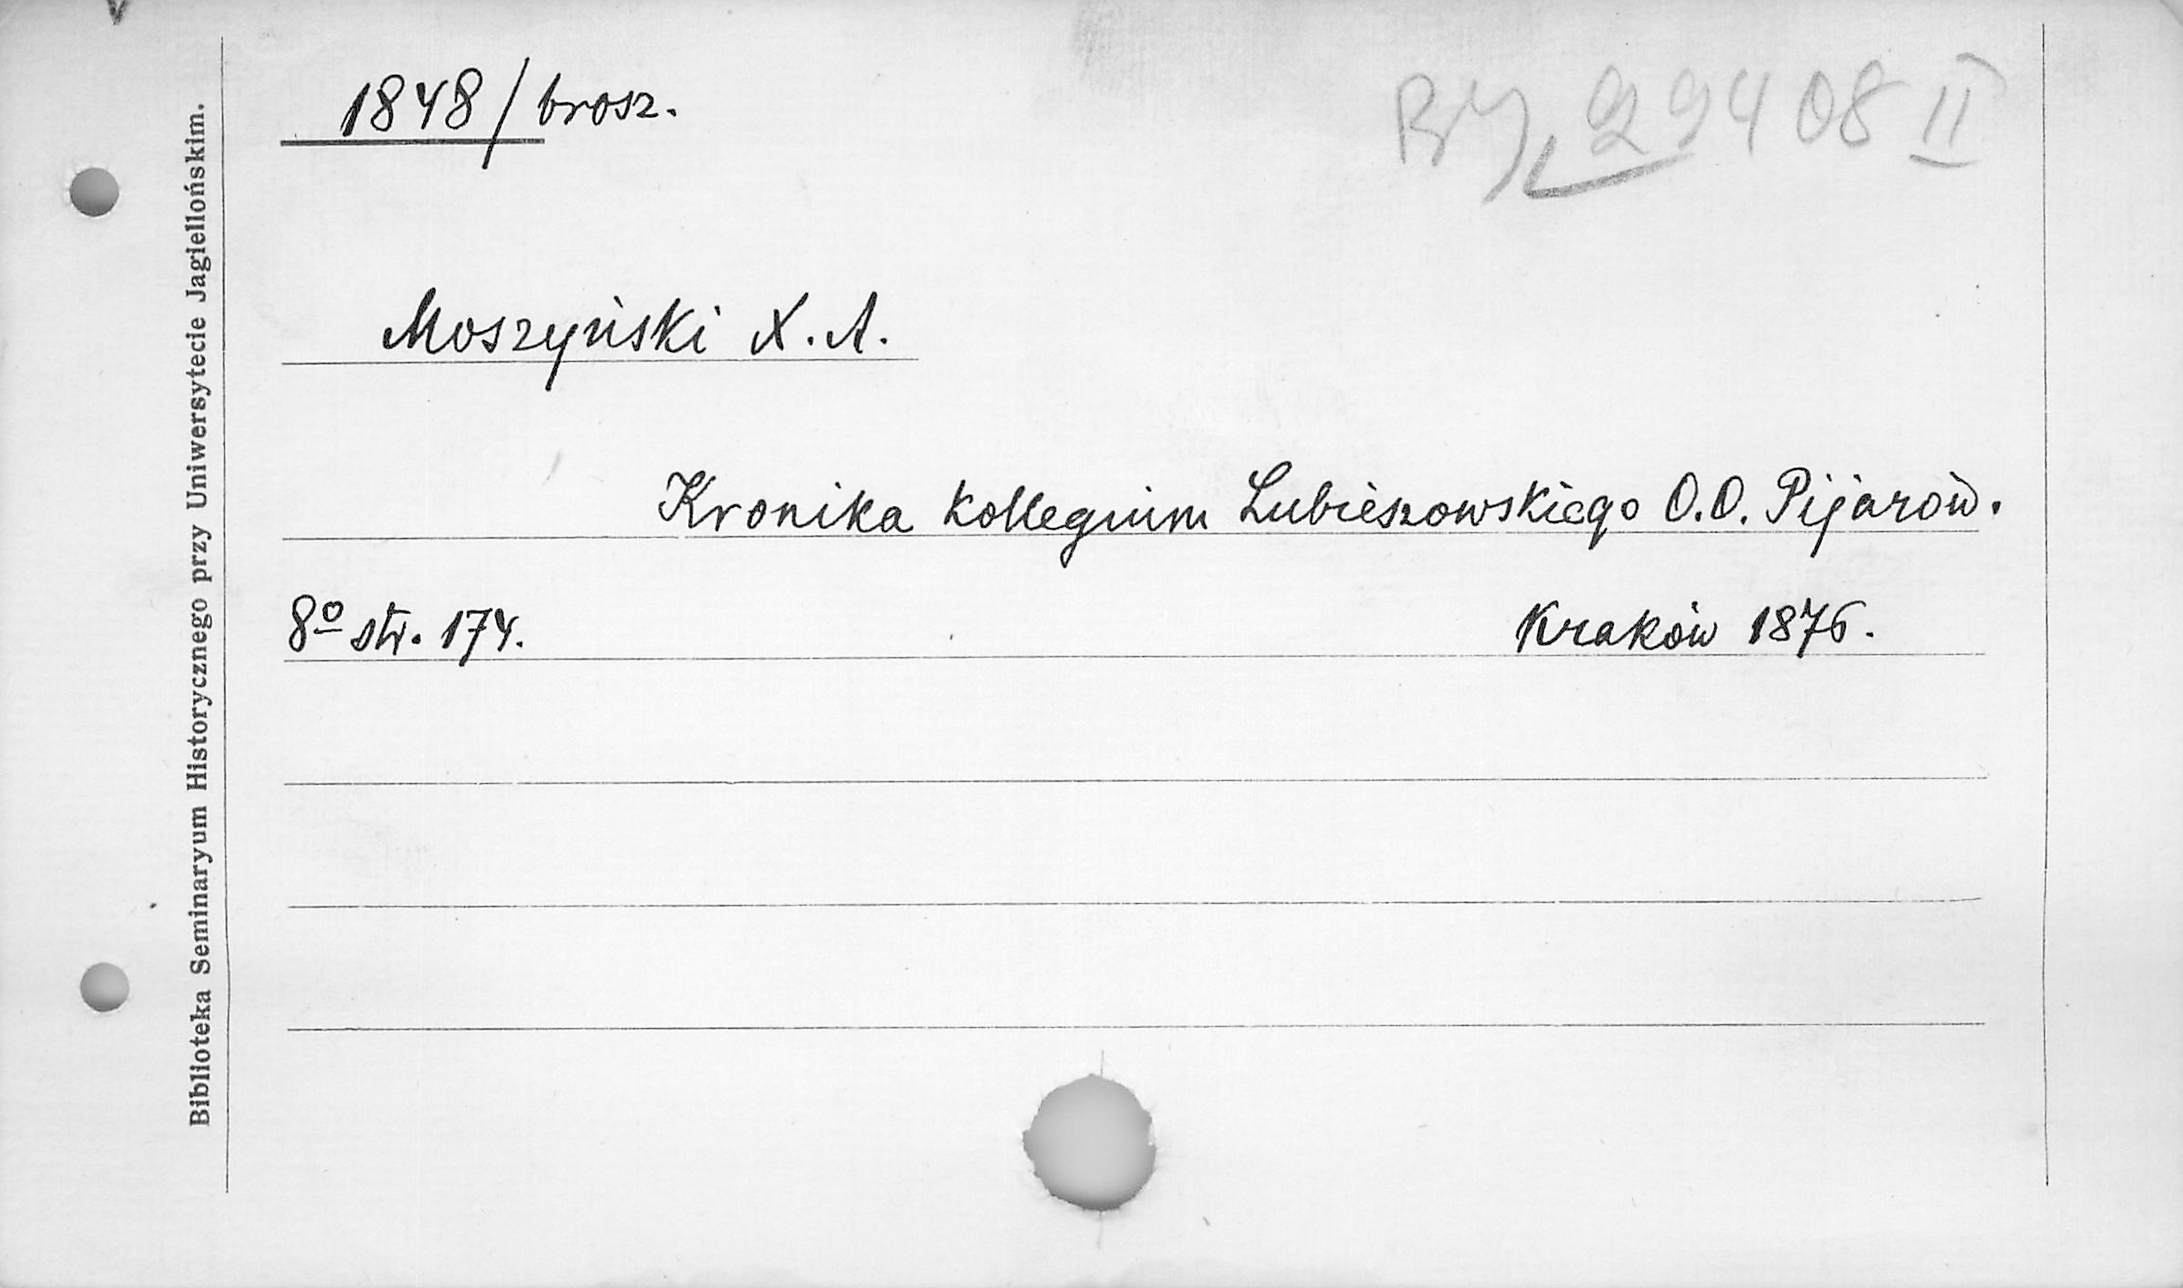 1848/brosz.
BJ 29408 II
Moszyński X. A.
Kronika kollegium Lubieszowskiego O.O. Pijarów.
8º str. 174.
Kraków 1876.
Biblioteka Seminaryum Historycznego przy Uniwersytecie Jagiellońskim.